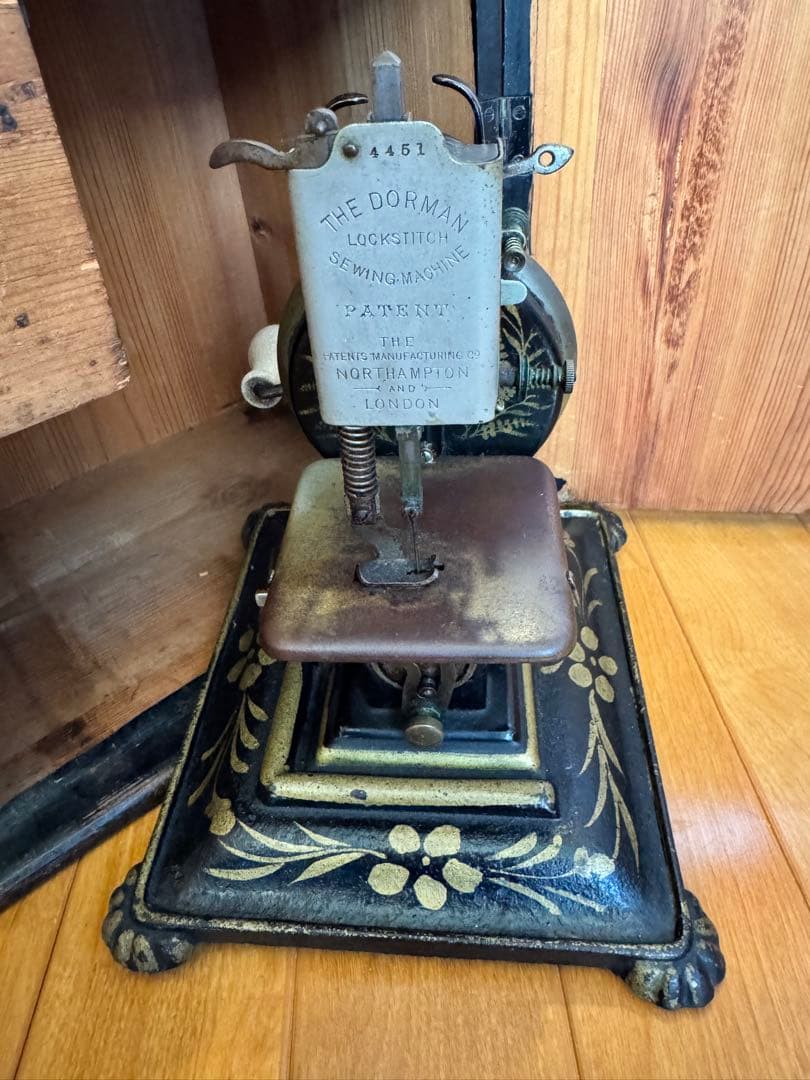 4451
THE DORMAN
LOCKSTITCH
SEWING·MACHINE
PATENT
THE
PATENTS MANUFACTURING CO
NORTHAMPTON
AND
LONDON